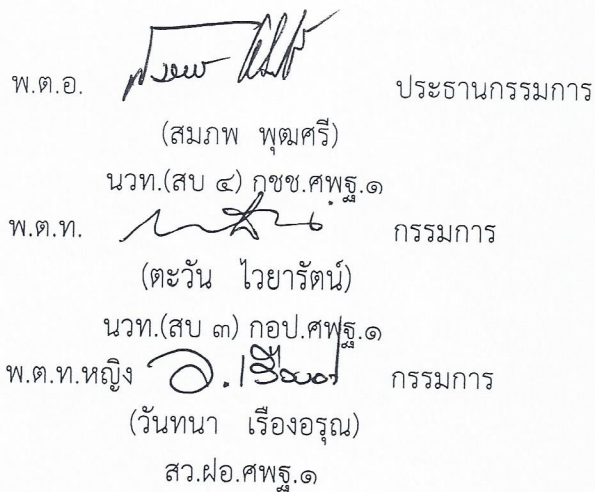 พ.ต.อ. ประธานกรรมการ
(สมภพ พุฒศรี)
นวท.(สบ ๔) กชช.ศพฐ.๑
พ.ต.ท. กรรมการ
(ตะวัน ไวยารัตน์)
นวท.(สบ ๓) กอป.ศพฐ.๑
พ.ต.ท.หญิง กรรมการ
(วันทนา เรืองอรุณ)
สว.ฝอ.ศพฐ.๑